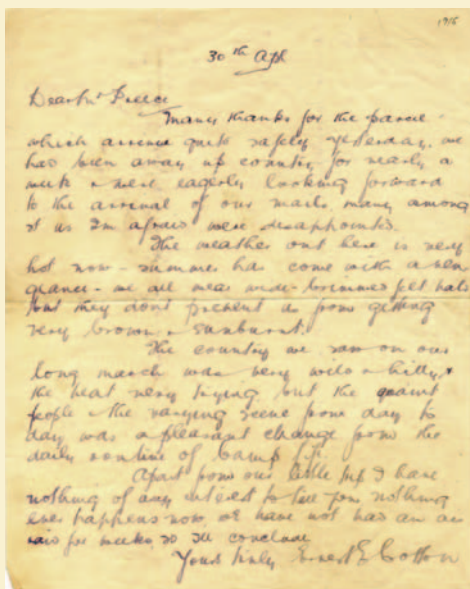 1916
30th Apl
Dear Mr Preece
Many thanks for the parcel
which arrived quite safely yesterday, we
has been away up country for nearly a
week & were eagerly looking forward
to the arrival of our mails, many among
st us I'm afraid were disappointed.
The weather out here is very
hot now - summer has come with a
glance - we all wear wide-brimmed felt hats
but they don't prevent us from getting
very brown & sunburnt.
The country we saw on our
long march was very wild & hilly &
the heat very trying but the quaint
people & the varying scene from day to
day was a pleasant change from the
daily routine of Camp life.
Apart from our little trip I have
nothing of any interest to tell you nothing
ever happens now, we have not had an air
raid for weeks, so I'll conclude
Yours truly Ernest E Cotton